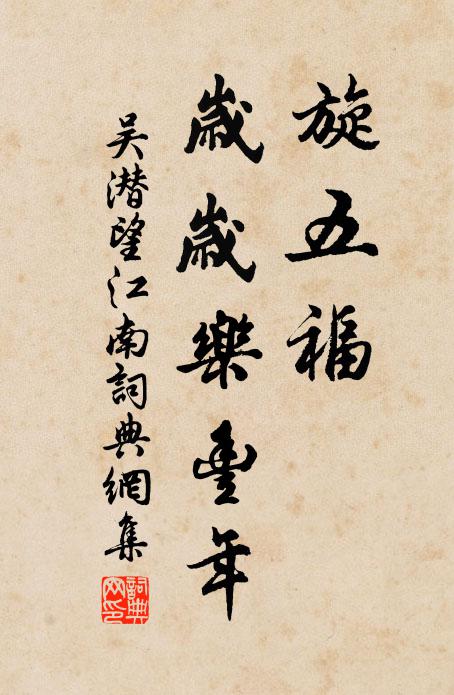 旋五福
歲歲樂豐年
吴潜望江南詞典網集
詞典网印